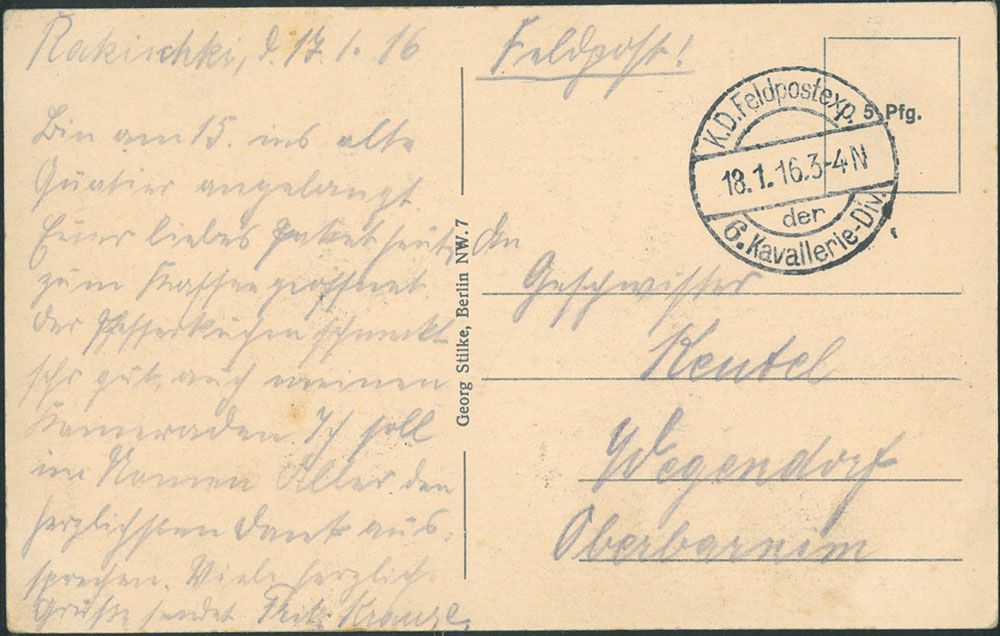 Rakischki, d. 17.1.16
Bin am 15. ins alte
Quatier angelangt.
Euer liebes Paket heute
zum Kaffee geöffnet
der Pfefferkuchen schmeckt
sehr gut, auch meinen
Kameraden. Ich soll
im Namen Aller den
herzlichsten Dank aus-
sprechen. Viele herzliche
Grüße sendet Fritz
Georg Stilke, Berlin NW. 7
Feldpost!
5 Pfg.
K.D. Feldpostexp.
18.1.16.3-4N
der
6. Kavallerie-Div.
An
Geschwister
Keutel
Wegendorf
Oberbarnim